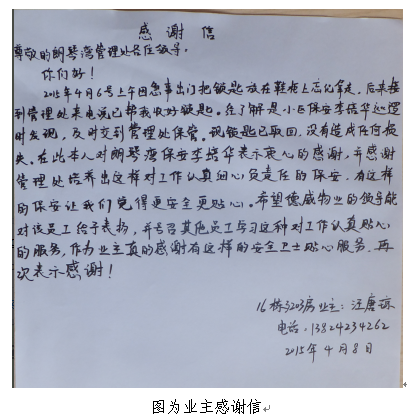 感谢信
尊敬的朗琴湾管理处各位领导,
你们好!
2015年4月6号上午因急事出门把锁匙放在鞋柜上忘记拿走,后来接
到管理处来电说已帮我收好锁匙。经了解是小区保安李培华巡逻
时发现,及时交到管理处保管。现锁匙已取回,没有造成任何损
失。在此本人对朗琴湾保安李培华表示衷心的感谢,并感谢
管理处培养出这样对工作认真细心负责任的保安,有这样
的保安让我们觉得更安全更贴心。希望德威物业的领导能
对该员工给予表扬,并号召其他员工学习这种对工作认真贴心
的服务,作为业主真的感谢有这样的安全卫士贴心服务,再
次表示感谢!
16栋3203房业主:汪唐琼
电话:13824234262
2015年4月8日
图为业主感谢信